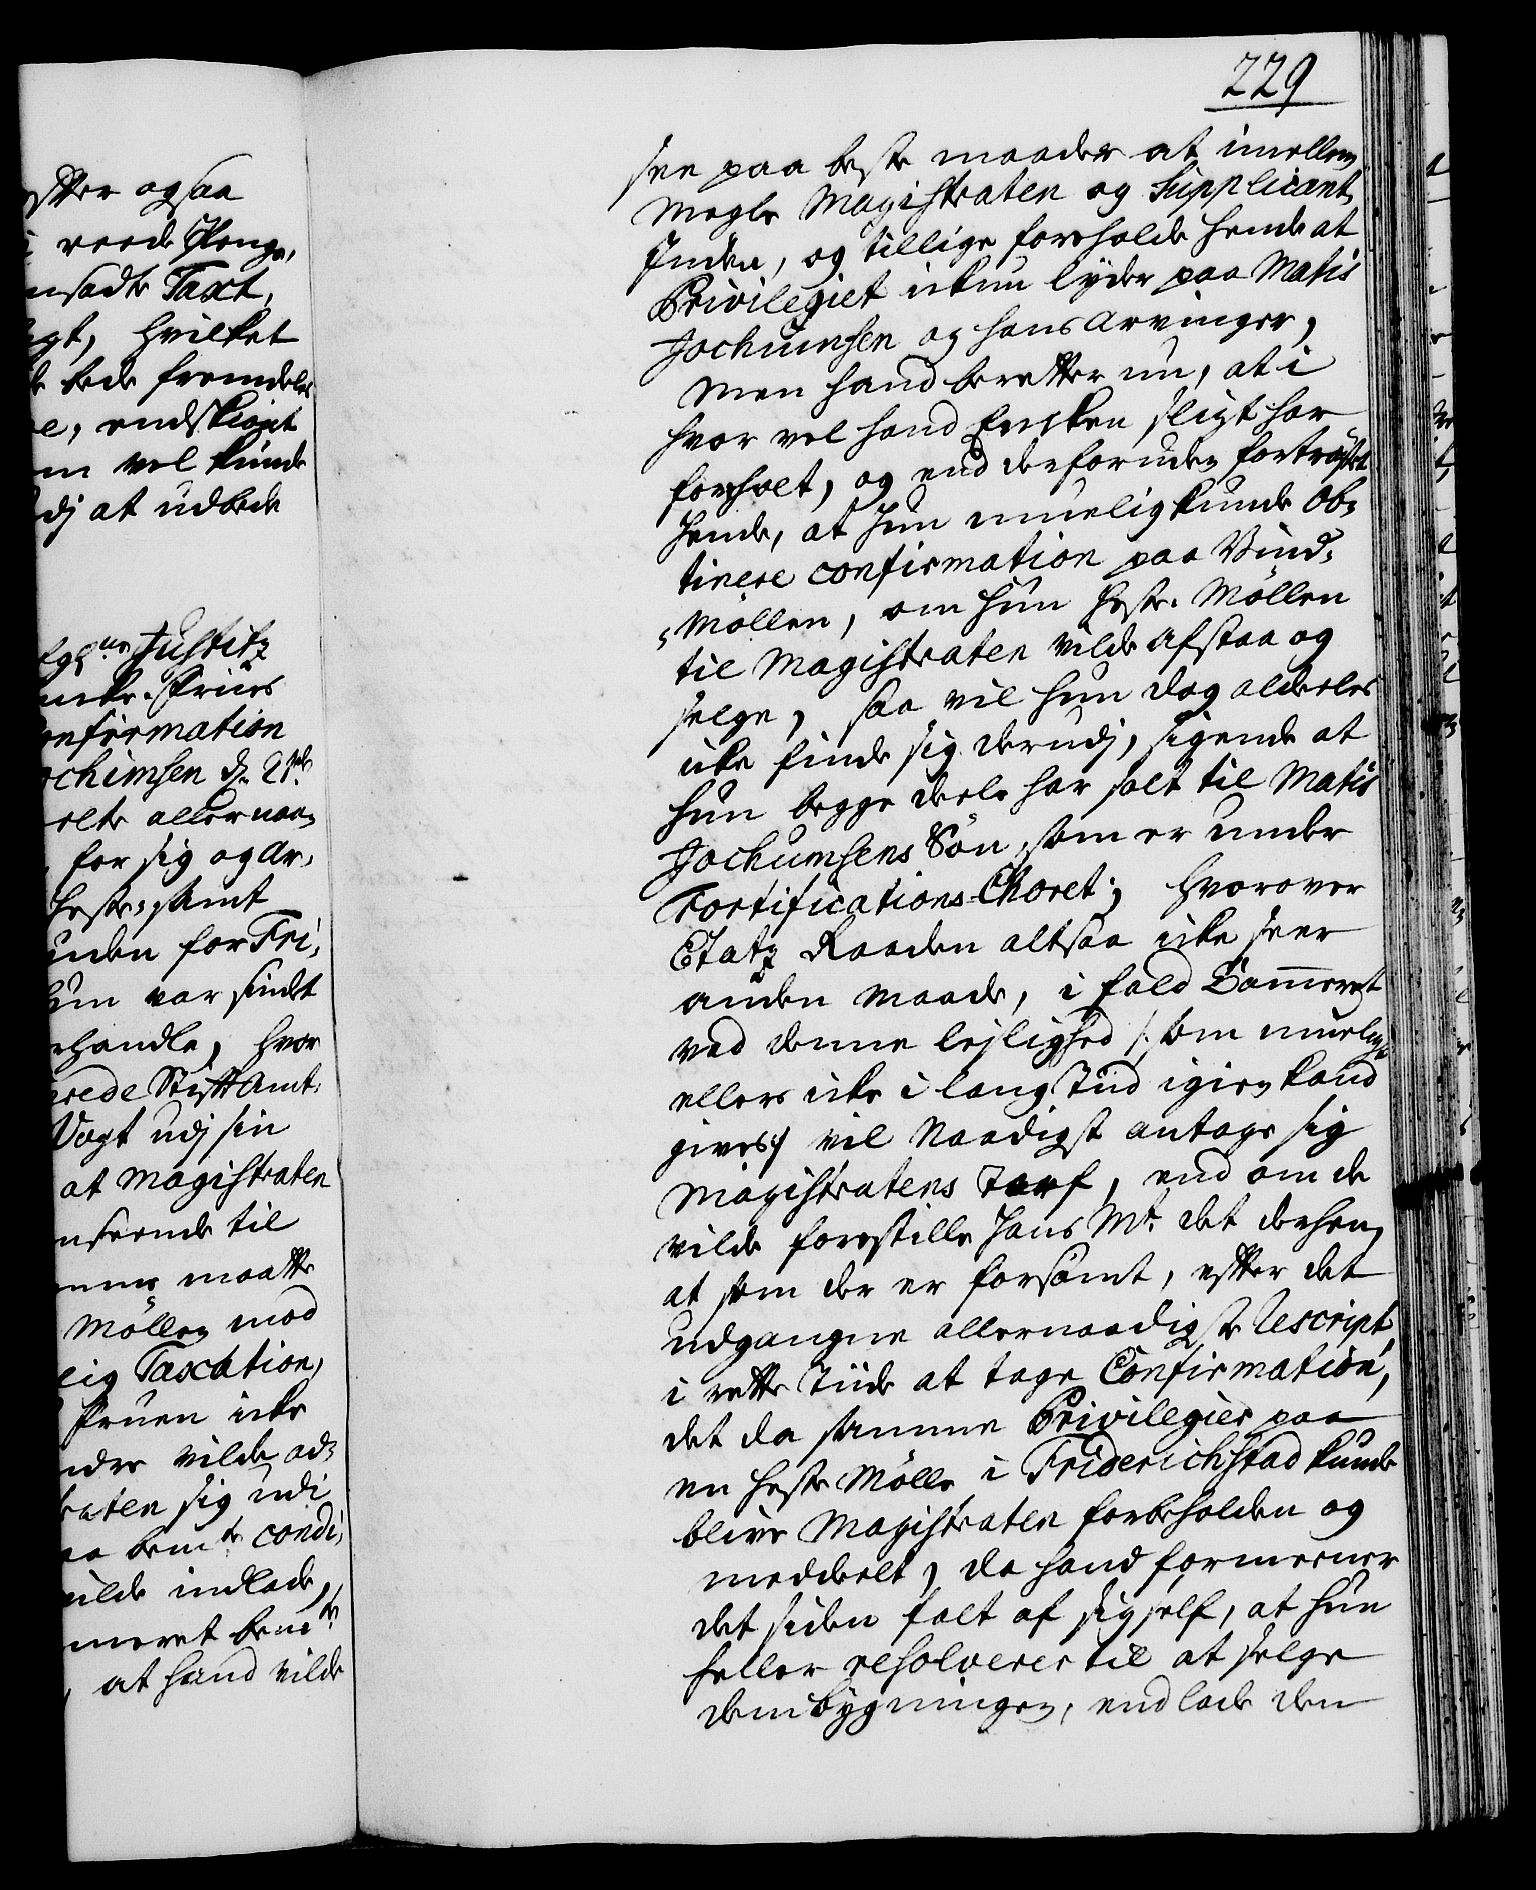 ester ogsaa
reede Penge,
nsadte Taxt,
gt, hvilket
bede fremdeles
e, endskiönt
m vel kunde
dj at udbede
Justitz
Friis
onfirmation
ochimsen d. 21de
elte allernaa-
for sig og Ar-
heste, samt
unden for Fri-
hun var sindt
rhandle, hvor
rede Stift Amt-
Vogt udj sin
at Magistraten
nseende til
maatte
Möllen mod
lig Taxation,
Fruen icke
ndre vilde ad-
raten sig udi
aa bemte condi-
vilde indlade,
meret bemte
at hand vilde
229
see paa beste maader at imellem
Megle Magistraten og Supplicant-
Inden, og tillige foreholde hende at
Privilegiet ickun lyder paa Matis
Jochumsen og hans arvinger,
Men hand beretter nu, at i
hvor vel hand Encken sligt har
foreholt, og end desforuden fortröstet
hende, at hun muelig kunde ob-
tinere confirmation paa Vind-
Möllen, om hun heste Möllen
til Magistraten vilde afstaa og
selge, saa vil hun dog aldeeles
icke finde sig derudj, sigende at
hun begge deele har solt til Matis
Jochumsens Sön, som er under
Fortifications-Choret; hvorover
Etatz Raaden altsaa icke seer
anden maade, i fald Cammeret
ved denne lejlighed /: som muelig
ellers icke i lang Tiid igien kand
gives :/ vil Naadigst antage sig
Magistratens Tarf, end om de
vilde forestille Hans Mt. det derhen,
at som der er forsömt, efter det
udgangne allernaadigste Rescript,
i rette Tiide at tage Confirmation,
det da samme Privilegier paa
en heste Mölle i Friderichstad kunde
blive Magistraten forbeholden og
meddeelt, da hand formeener
det siden falt af sig self, at hun
heller resolverer til at selge
dem bygningen, end lade den